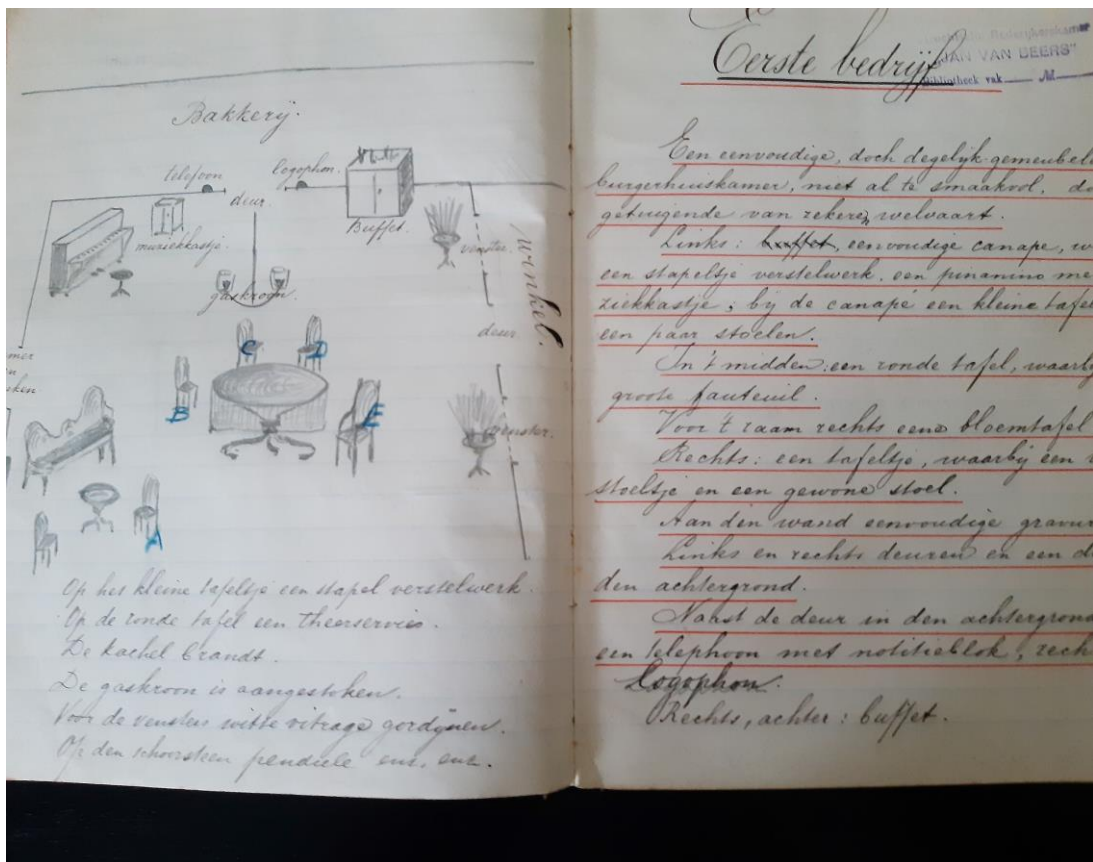 Bakkerij.
telefoon
logophon.
deur.
muziekkastje.
Buffet.
venster.
winkel.
gaskroon.
deur.
C
D
B
E
venster.
A
Op het kleine tafeltje een stapel verstelwerk.
Op de ronde tafel een Theeservies.
De kachel brandt.
De gaskroon is aangestoken.
Voor de vensters witte vitrage gordijnen.
Op den schoorsteen pendule enz, enz.
Eerste bedrijf
"JAN VAN BEERS"
Bibliotheek vak
Een eenvoudige, doch degelijk-gemeubel
burgerhuiskamer, niet al te smaakvol, do
getuigende van zekere welvaart.
Links: buffet, eenvoudige canape, w
een stapeltje verstelwerk, een pinanino me
ziekkastje; bij de canapé een kleine tafel
een paar stoelen.
In 't midden: een ronde tafel, waarbij
groote fauteuil.
Voor 't raam rechts eene bloemtafel
Rechts: een tafeltje, waarbij een
stoeltje en een gewone stoel.
Aan den wand eenvoudige gravur
Links en rechts deuren en een d
den achtergrond.
Naast de deur in den achtergrond
een telephoon met notitieblok, rech
Logophon.
Rechts, achter: buffet.